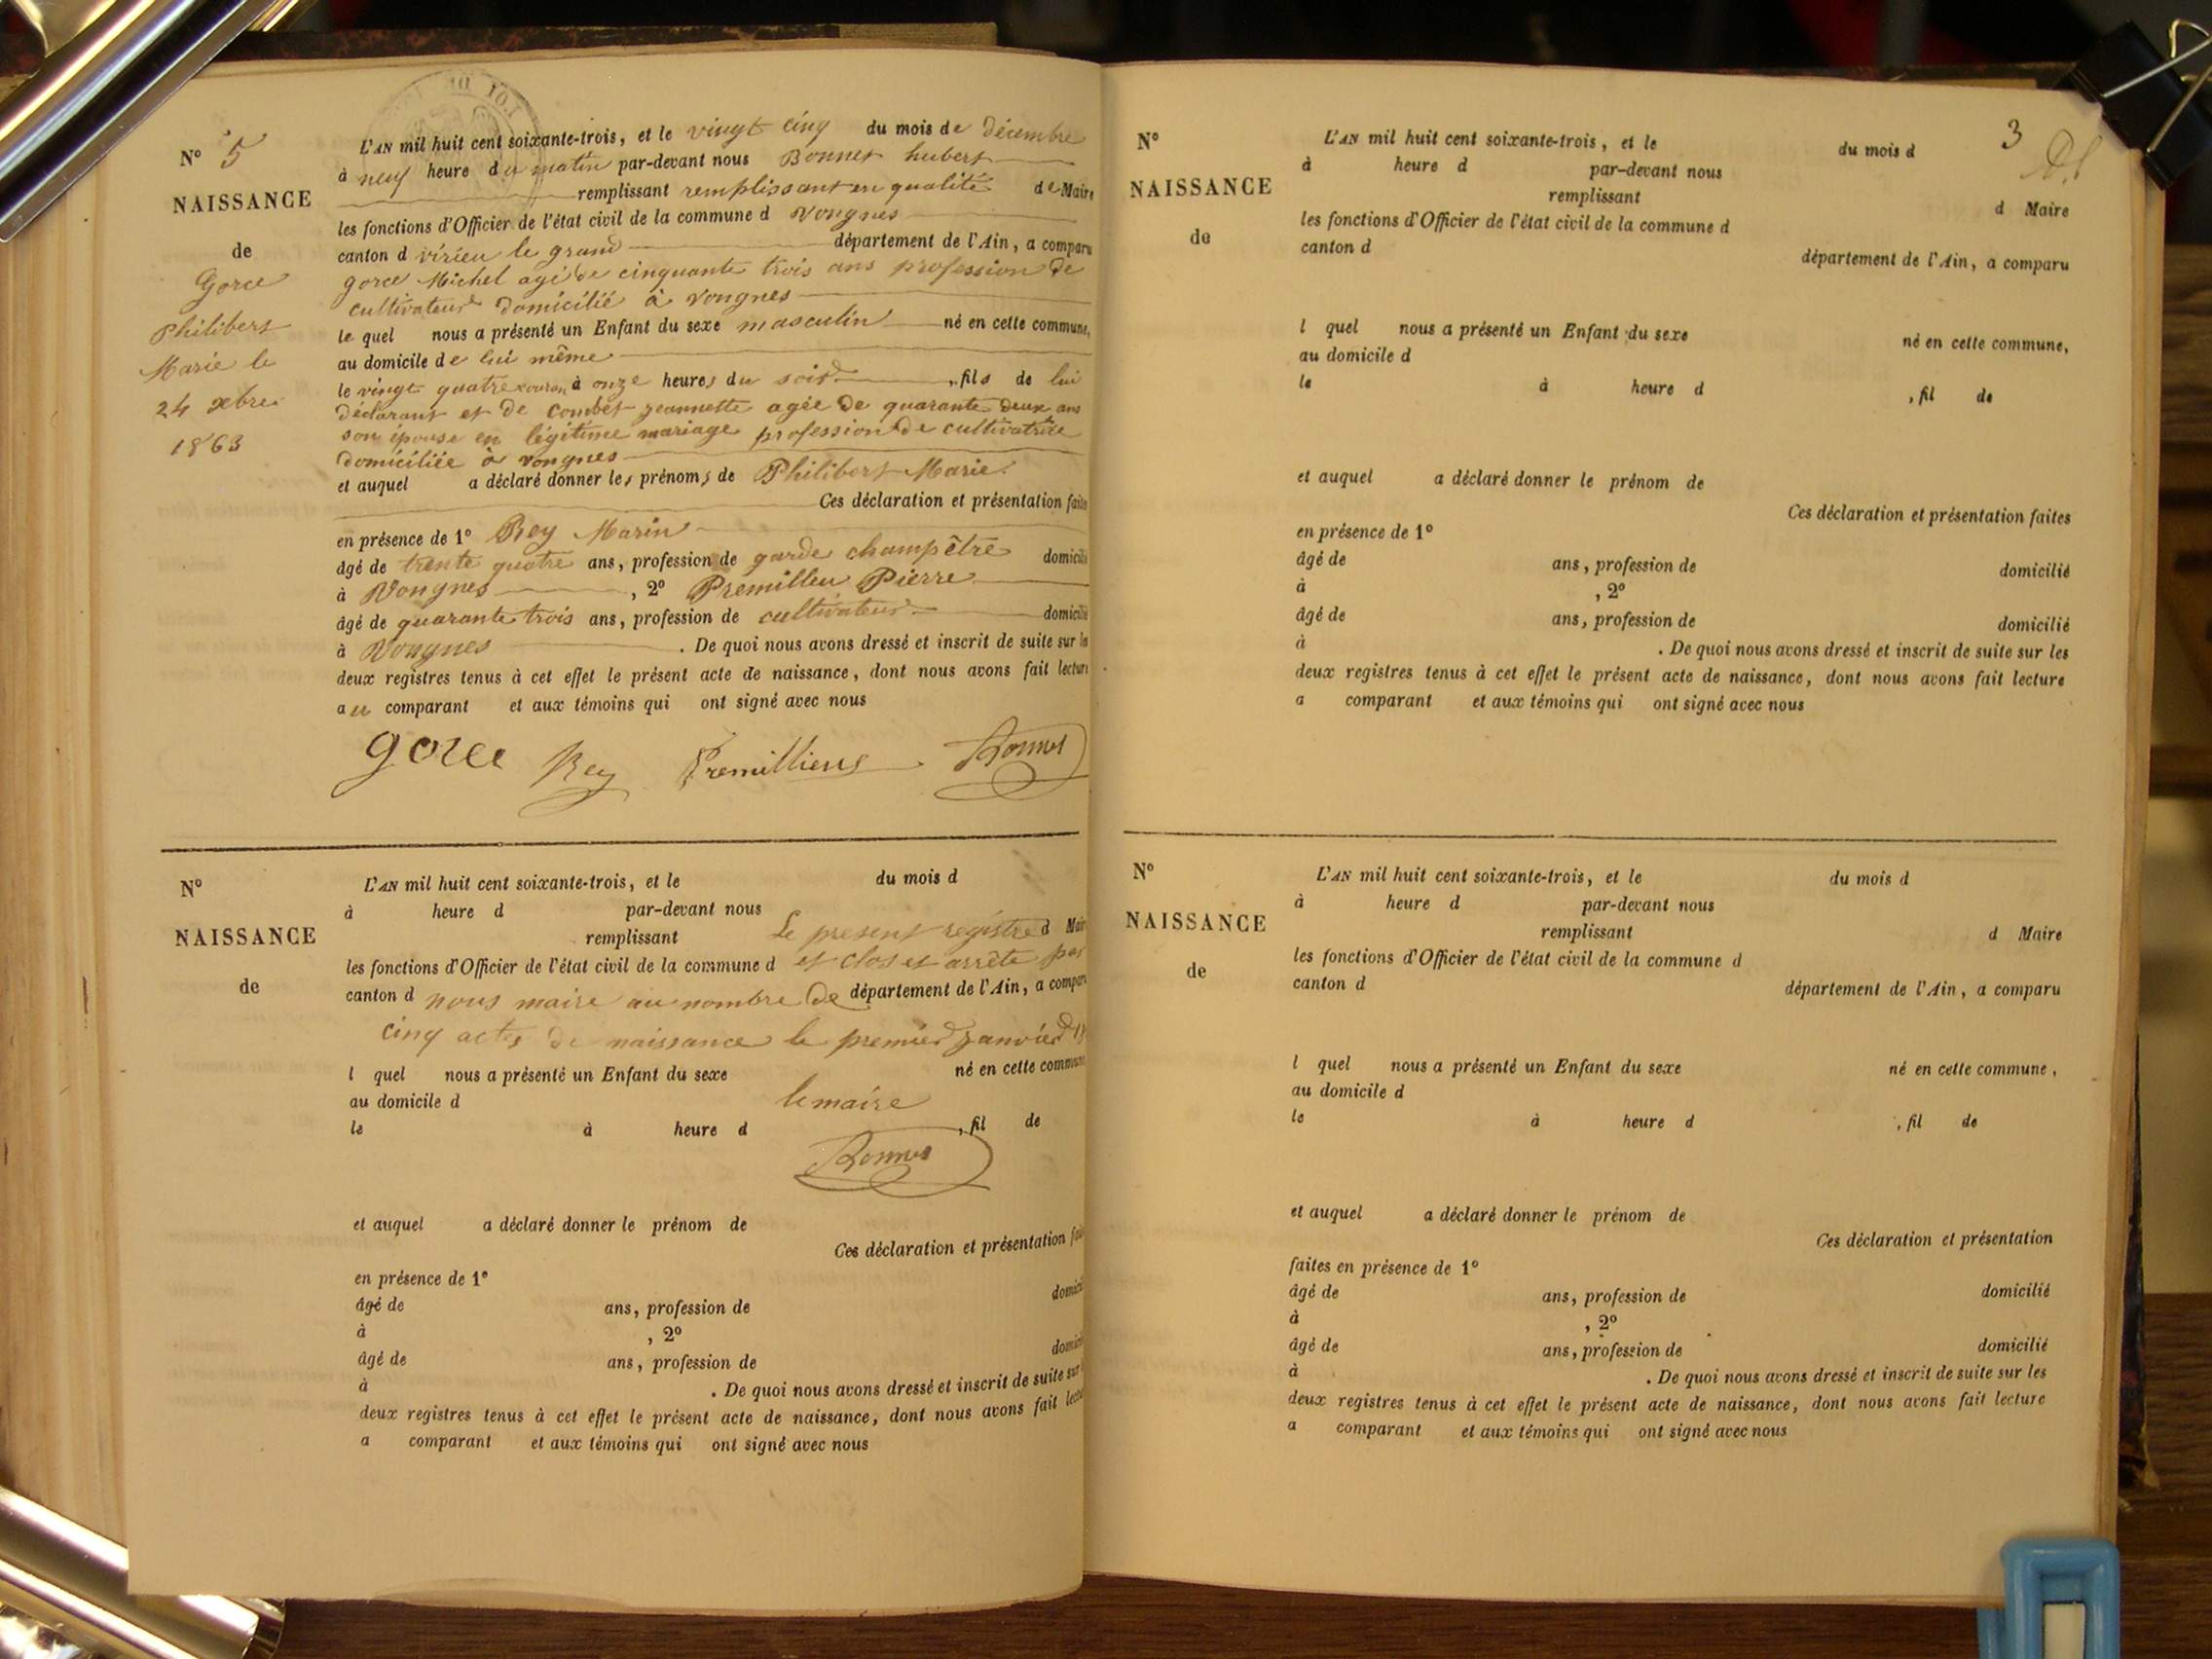 N° 5
NAISSANCE
de
Gorce
Philibert
Marie le
24 xbre
1863
L'AN mil huit cent soixante-trois, et le vingt cinq du mois de décembre
à neuf heure du matin par-devant nous Bonnet hubert
remplissant remplissant en qualité de Maire
les fonctions d'Officier de l'état civil de la commune d Vongnes
canton d virieu le grand département de l'Ain, a comparu
gorce Michel agé de cinquante trois ans profession de
cultivateur domicilié à vongnes
le quel nous a présenté un Enfant du sexe masculin né en cette commune,
au domicile de lui même
le vingt quatre courant à onze heures du soir, fils de lui
déclarant et de Combet jeannette agée de quarante deux ans
son épouse en légitime mariage profession de cultivatrice
domiciliée à vongnes
et auquel a déclaré donner les prénoms de Philibert Marie.
Ces déclaration et présentation faites
en présence de 1° Rey Marin
âgé de trente quatre ans, profession de garde champêtre domicilié
à Vongnes, 2° Premilleu Pierre
âgé de quarante trois ans, profession de cultivateur domicilié
à Vongnes. De quoi nous avons dressé et inscrit de suite sur les
deux registres tenus à cet effet le présent acte de naissance, dont nous avons fait lecture
au comparant et aux témoins qui ont signé avec nous
gorce Rey Premillieux Bonnet
N°
NAISSANCE
de
L'AN mil huit cent soixante-trois, et le du mois d
à heure d par-devant nous
remplissant Le present registre d Maire
les fonctions d'Officier de l'état civil de la commune d et clos et arrête par
canton d nous maire au nombre de département de l'Ain, a comparu
cinq actes de naissance le premier janvier 18
l quel nous a présenté un Enfant du sexe né en cette commune
au domicile d le maire
le à heure d , fil de
Bonnet
et auquel a déclaré donner le prénom de
Ces déclaration et présentation fai
en présence de 1°
âgé de ans, profession de domici
à , 2°
âgé de ans, profession de domici
à . De quoi nous avons dressé et inscrit de suite sur
deux registres tenus à cet effet le présent acte de naissance, dont nous avons fait lecture
a comparant et aux témoins qui ont signé avec nous
3
N°
NAISSANCE
de
L'AN mil huit cent soixante-trois, et le du mois d
à heure d par-devant nous
remplissant d Maire
les fonctions d'Officier de l'état civil de la commune d
canton d département de l'Ain, a comparu
l quel nous a présenté un Enfant du sexe né en cette commune,
au domicile d
le à heure d , fil de
et auquel a déclaré donner le prénom de
Ces déclaration et présentation faites
en présence de 1°
âgé de ans, profession de domicilié
à , 2°
âgé de ans, profession de domicilié
à . De quoi nous avons dressé et inscrit de suite sur les
deux registres tenus à cet effet le présent acte de naissance, dont nous avons fait lecture
a comparant et aux témoins qui ont signé avec nous
N°
NAISSANCE
de
L'AN mil huit cent soixante-trois, et le du mois d
à heure d par-devant nous
remplissant d Maire
les fonctions d'Officier de l'état civil de la commune d
canton d département de l'Ain, a comparu
l quel nous a présenté un Enfant du sexe né en cette commune,
au domicile d
le à heure d , fil de
et auquel a déclaré donner le prénom de
Ces déclaration et présentation
faites en présence de 1°
âgé de ans, profession de domicilié
à , 2°
âgé de ans, profession de domicilié
à . De quoi nous avons dressé et inscrit de suite sur les
deux registres tenus à cet effet le présent acte de naissance, dont nous avons fait lecture
a comparant et aux témoins qui ont signé avec nous